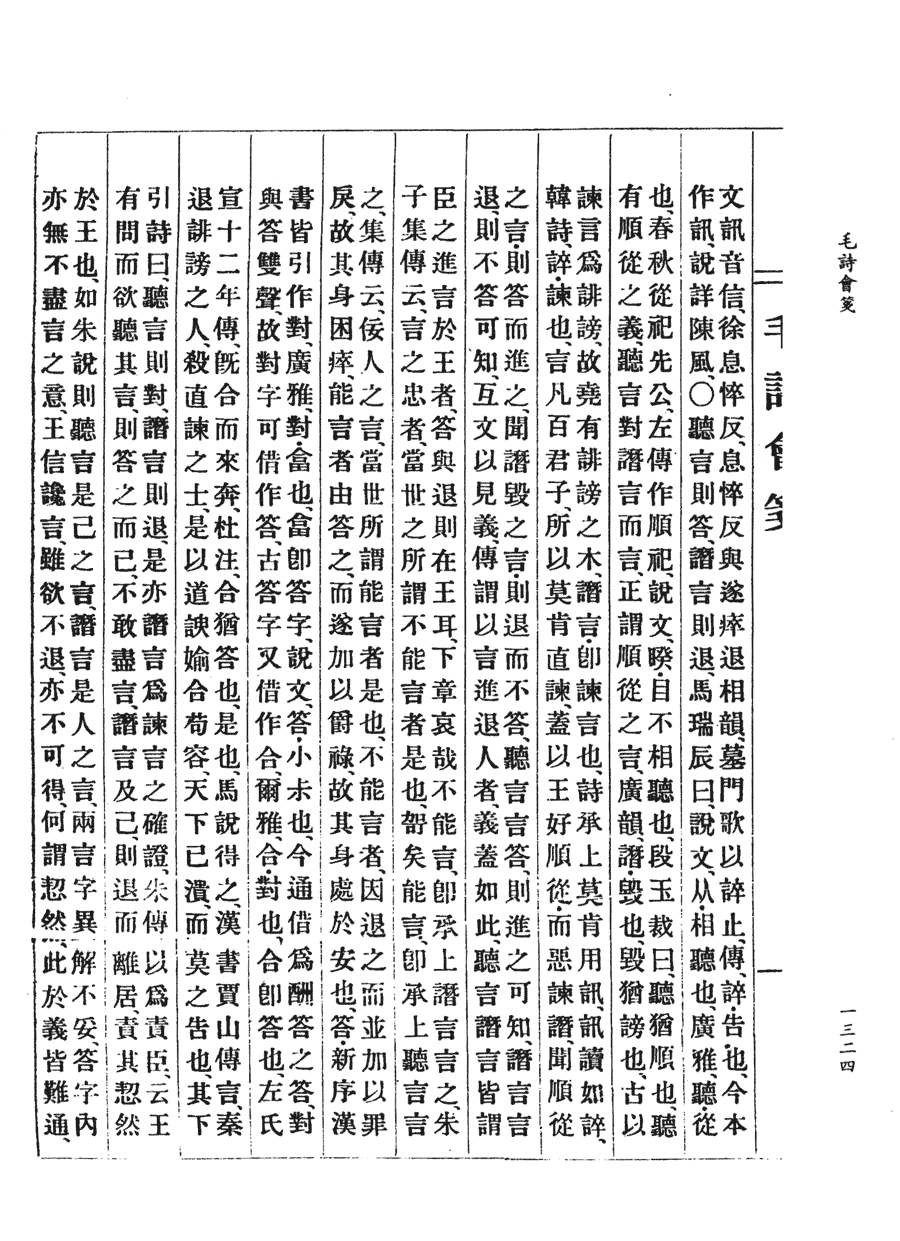 毛詩會箋
一三二四
毛詩會箋
文訊音信、徐息悴反、息悴反與遂瘁退相韻、墓門歌以誶止、傳、誶・告也、今本
作訊、說詳陳風、〇聽言則答、譖言則退、馬瑞辰曰、說文、从・相聽也、廣雅、聽・從
也、春秋從祀先公、左傳作順祀、說文、睽・目不相聽也、段玉裁曰、聽猶順也、聽
有順從之義、聽言對譖言而言、正謂順從之言、廣韻、譖・毀也、毀猶謗也、古以
諫言爲誹謗、故堯有誹謗之木、譖言・卽諫言也、詩承上莫肯用訊、訊讀如誶、
韓詩、誶・諫也、言凡百君子、所以莫肯直諫、蓋以王好順從、而惡諫譖、聞順從
之言、則答而進之、聞譖毀之言、則退而不答、聽言言答、則進之可知、譖言言
退、則不答可知、互文以見義、傳謂以言進退人者、義蓋如此、聽言譖言皆謂
臣之進言於王者、答與退則在王耳、下章哀哉不能言、卽承上譖言言之、朱
子集傳云、言之忠者、當世之所謂不能言者是也、哿矣能言、卽承上聽言言
之、集傳云、佞人之言、當世所謂能言者是也、不能言者、因退之而並加以罪
戾、故其身困瘁、能言者由答之、而遂加以爵祿、故其身處於安也、答・新序漢
書皆引作對、廣雅、對・畣也、畣卽答字、說文、答・小尗也、今通借爲酬答之答、對
與答雙聲、故對字可借作答、古答字又借作合、爾雅、合・對也、合卽答也、左氏
宣十二年傳、旣合而來奔、杜注、合猶答也、是也、馬說得之、漢書賈山傳言、秦
退誹謗之人、殺直諫之士、是以道諛媮合苟容、天下已潰、而莫之告也、其下
引詩曰、聽言則對、譖言則退、是亦譖言爲諫言之確證、朱傳以爲責臣、云王
有問而欲聽其言、則答之而已、不敢盡言、譖言及己、則退而離居、責其恝然
於王也、如朱說則聽言是己之言、譖言是人之言、兩言字異解不妥、答字內
亦無不盡言之意、王信讒言、雖欲不退、亦不可得、何謂恝然、此於義皆難通、